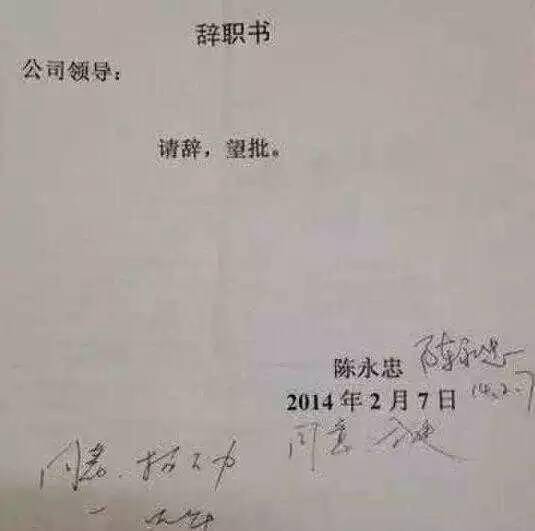 辞职书
公司领导：
请辞，望批。
陈永忠 陈永忠
2014年2月7日 14.2.7
同意
同意